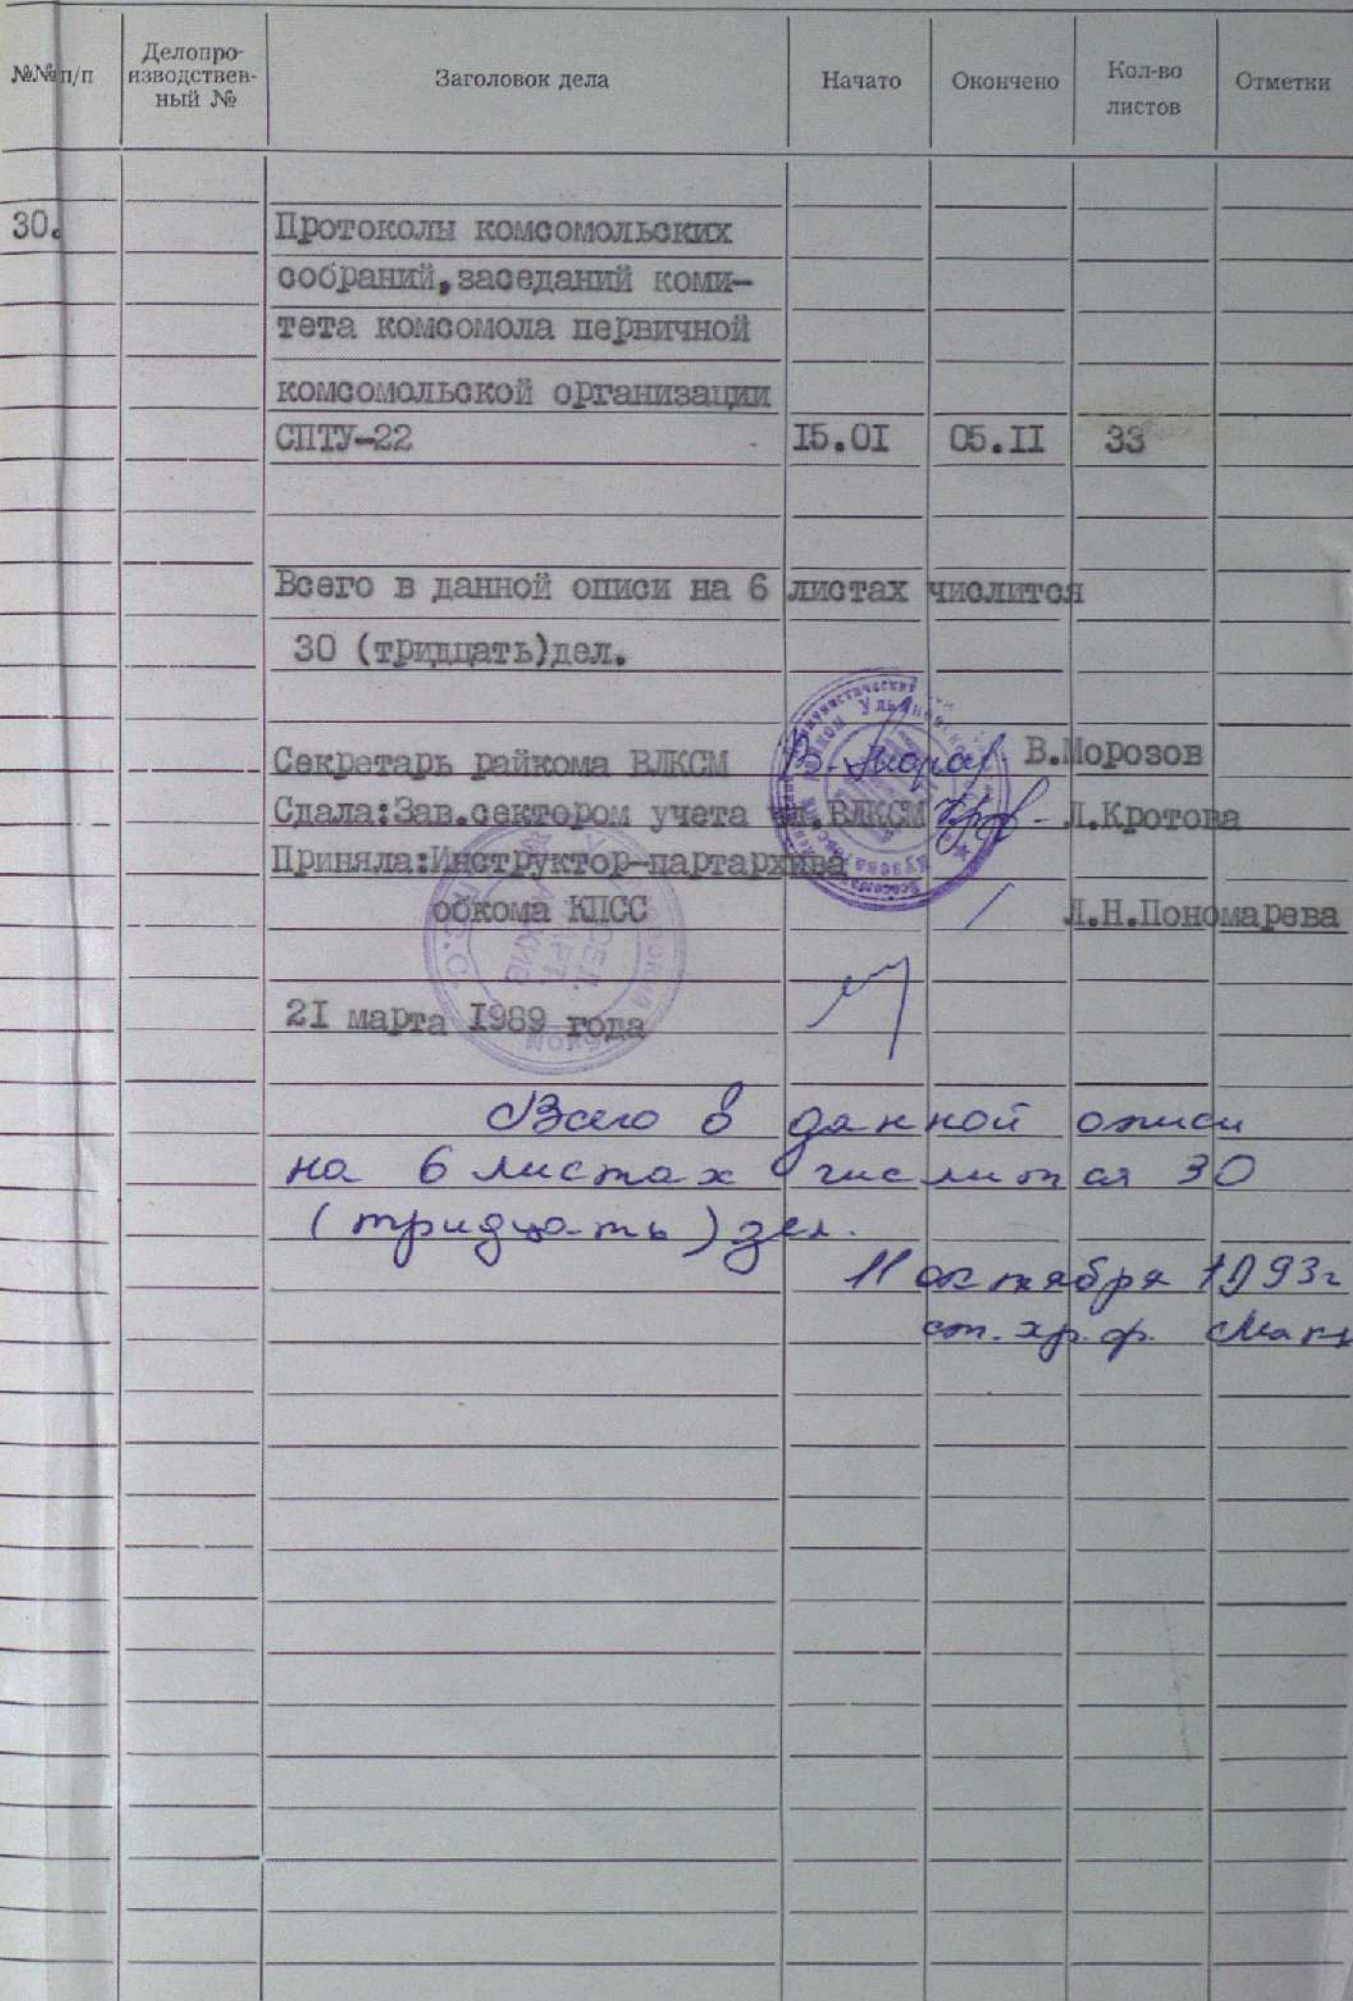 №№ п/п Делопро-
изводствен-
ный № Заголовок дела Начато Окончено Кол-во
листов Отметки
30. Протоколы комсомольских
собраний, заседаний коми-
тета комсомола первичной
комсомольской организации
СПТУ-22 I5.0I 05.II 33
Всего в данной описи на 6 листах числится
30 (тридцать)дел.
Секретарь райкома ВЛКСМ В.Морозов
Сдала:Зав.сектором учета ВЛКСМ Л.Кротова
Приняла:Инструктор-партархива
обкома КПСС Л.Н.Пономарева
2I марта I989 года
Всего в данной описи
на 6 листах числится 30
(тридцать) дел.
11 октября 1993г
ст. хр. ф.